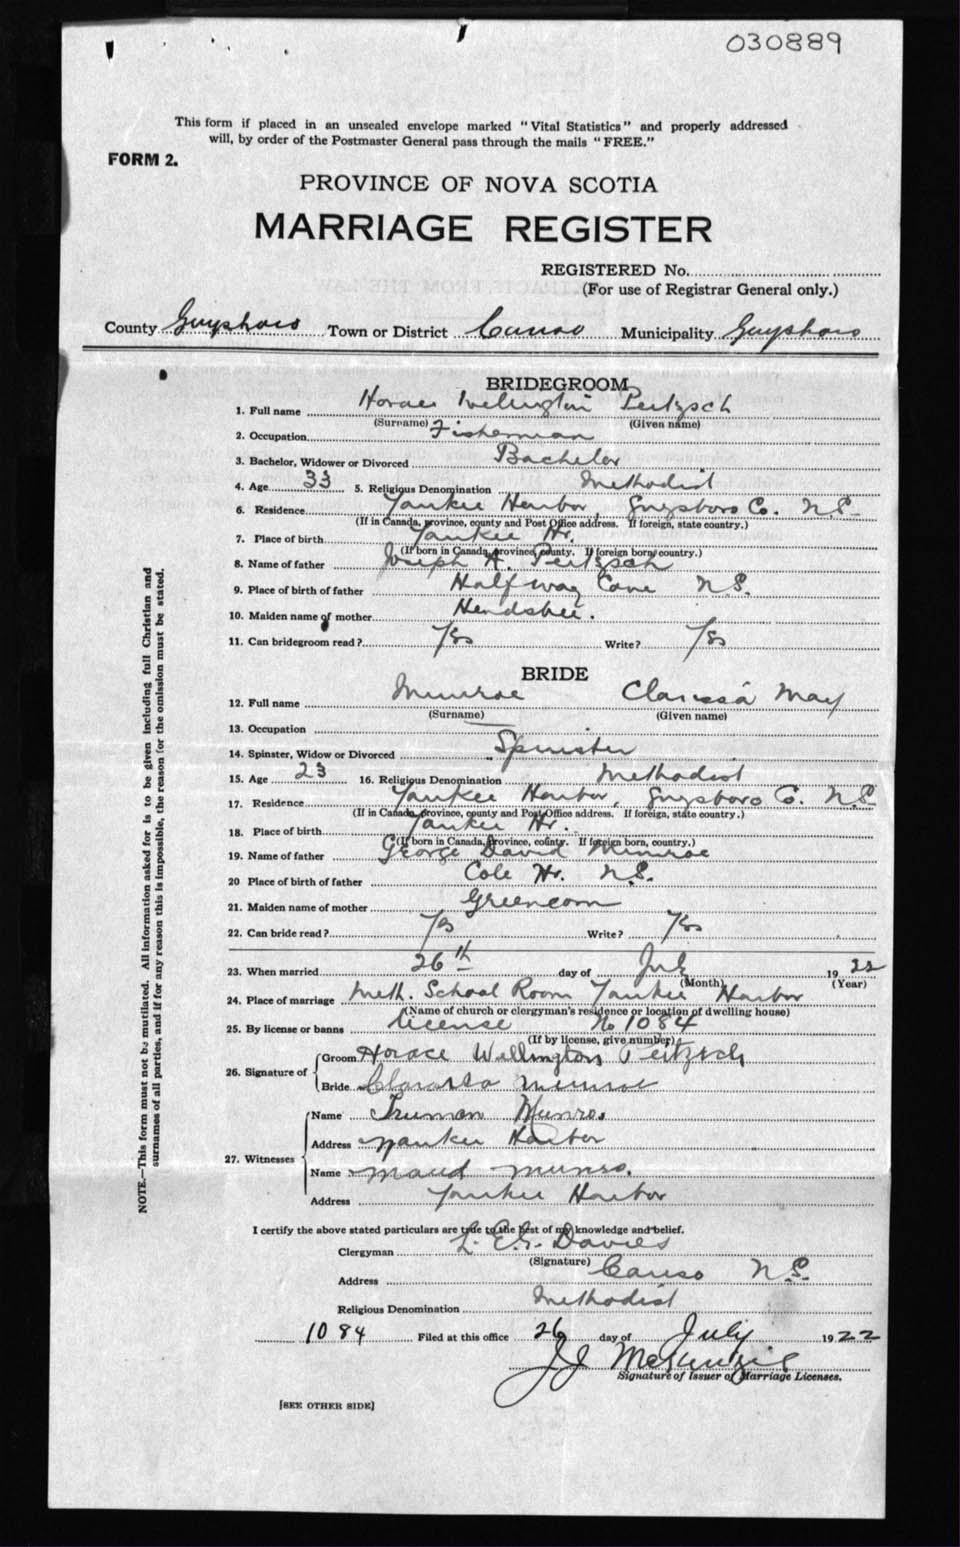 030889
This form if placed in an unsealed envelope marked "Vital Statistics" and properly addressed
will, by order of the Postmaster General pass through the mails "FREE."
FORM 2.
PROVINCE OF NOVA SCOTIA
MARRIAGE REGISTER
REGISTERED No.
(For use of Registrar General only.)
County Guysboro Town or District Canso Municipality Guysboro
BRIDEGROOM
1. Full name Horace Wellington Peitzsch
(Surname) (Given name)
2. Occupation Fisherman
3. Bachelor, Widower or Divorced Bachelor
4. Age 33 5. Religious Denomination Methodist
6. Residence Yankee Harbor, Guysboro Co. N.S.
(If in Canada, province, county and Post Office address. If foreign, state country.)
7. Place of birth Yankee Hr.
(If born in Canada, province, county. If foreign born, country.)
8. Name of father Joseph A. Peitzsch
9. Place of birth of father Half way Cove N.S.
10. Maiden name of mother Hendsbee.
11. Can bridegroom read? Yes Write? Yes
BRIDE
12. Full name Munroe Clarissa May
(Surname) (Given name)
13. Occupation
14. Spinster, Widow or Divorced Spinster
15. Age 23 16. Religious Denomination Methodist
17. Residence Yankee Harbor, Guysboro Co. N.S.
(If in Canada, province, county and Post Office address. If foreign, state country.)
18. Place of birth Yankee Hr.
(If born in Canada, province, county. If foreign born, country.)
19. Name of father George David Munroe
20 Place of birth of father Cole Hr. N.S.
21. Maiden name of mother Greencorn
22. Can bride read? Yes Write? Yes
23. When married 26th day of July 1922
(Month) (Year)
24. Place of marriage Meth. School Room Yankee Harbor
(Name of church or clergyman's residence or location of dwelling house)
25. By license or banns license No 1084
(If by license, give number)
26. Signature of
Groom Horace Wellington Peitzsch
Bride Clarissa Munroe
27. Witnesses
Name Truman Munroe
Address Yankee Harbor
Name Maud Munro.
Address Yankee Harbor
I certify the above stated particulars are true to the best of my knowledge and belief.
Clergyman L. E. G. Davies
(Signature)
Address Canso N.S.
Religious Denomination Methodist
1084 Filed at this office 26 day of July 1922
JJ McKenzie
Signature of Issuer of Marriage Licenses.
[SEE OTHER SIDE]
NOTE.—This form must not be mutilated. All information asked for is to be given including full Christian and
surnames of all parties, and if for any reason this is impossible, the reason for the omission must be stated.